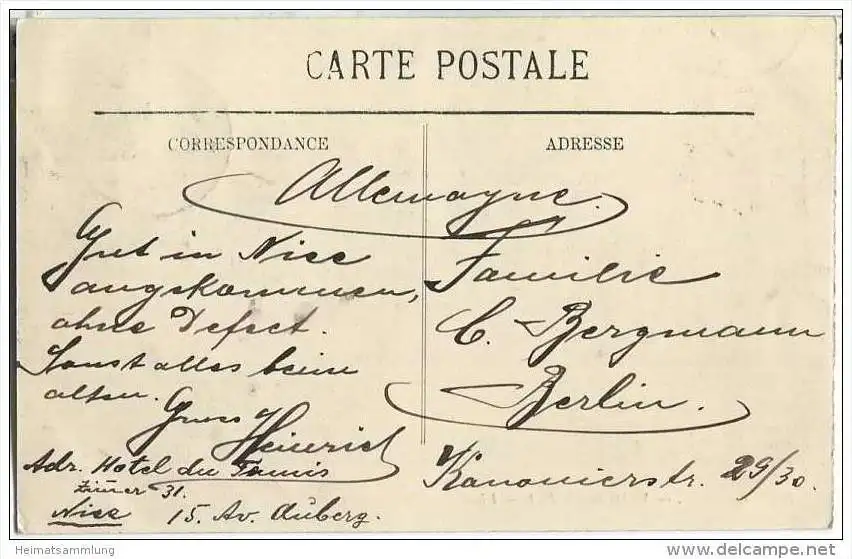 CARTE POSTALE
CORRESPONDANCE
ADRESSE
Allemagne.
Gut in Nice
angekommen,
ohne Defect.
Sonst alles beim
alten.
Gruss Heinrich
Adr. Hotel du
31.
Nice 15. Av. Auberg.
Familie
C. Bergmann
Berlin.
Kanonierstr. 29/30
Heimatsammlung
www.delcampe.net